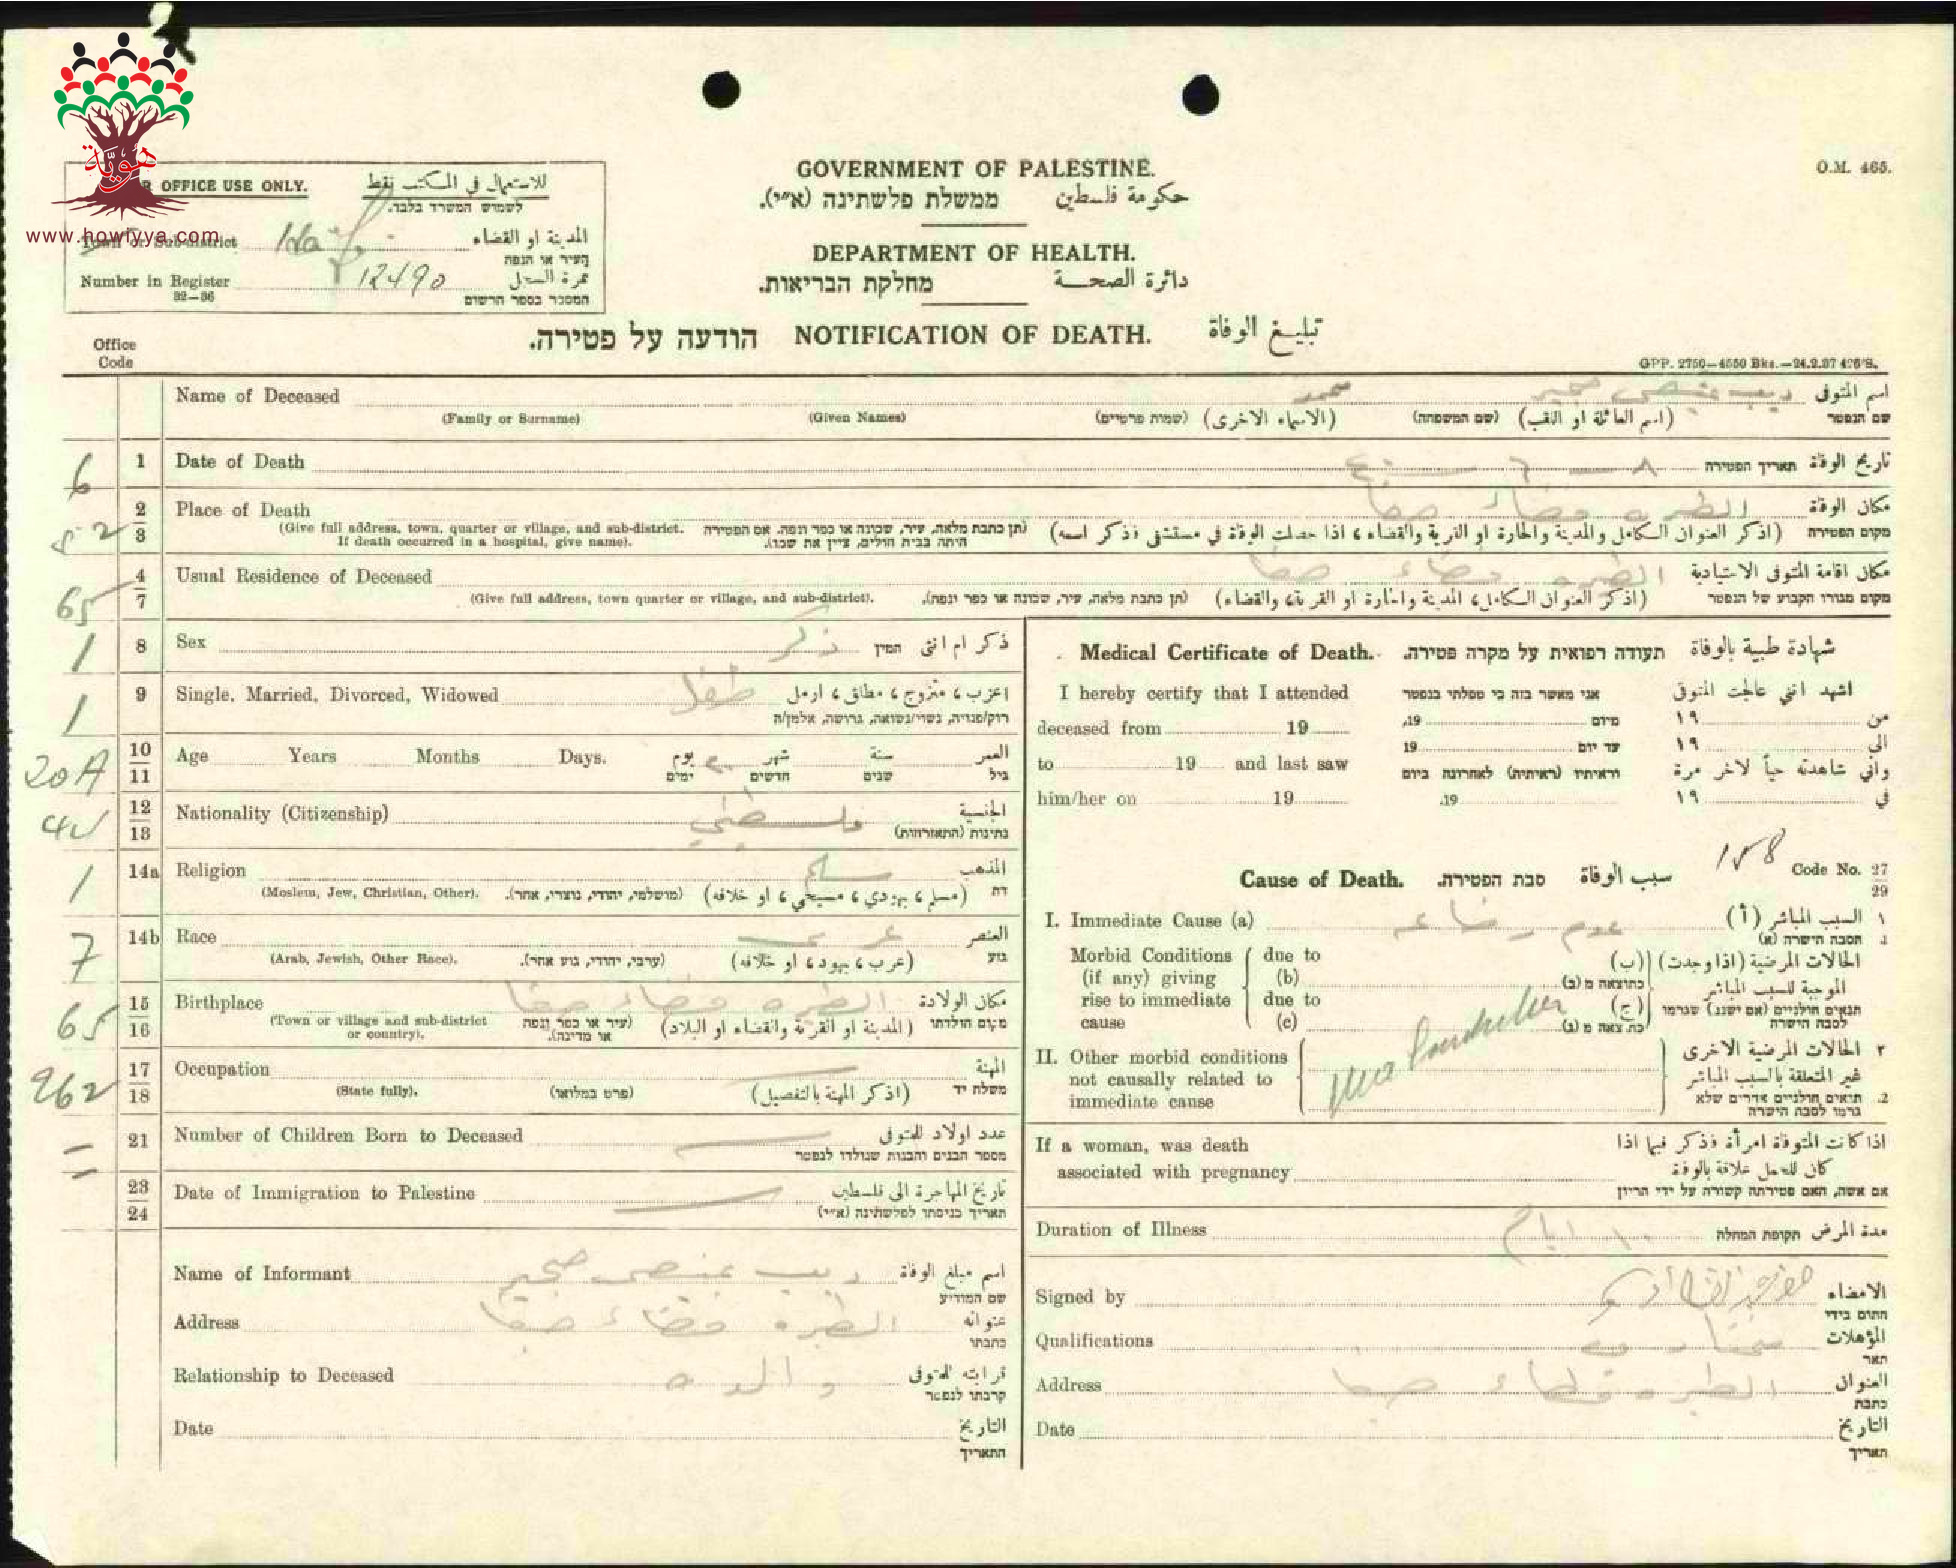 هُوِيَّة
www.howiyya.com
OFFICE USE ONLY. للاستعمال في المكتب فقط
לשמוש המשרד בלבד.
Town or Sub-district Haifa المدينة او القضاء
העיר או הנפה
Number in Register 12490 نمرة السجل
32—36 המספר בספר הרשום
GOVERNMENT OF PALESTINE.
ממשלת פלשתינה (א״י). حكومة فلسطين
DEPARTMENT OF HEALTH.
מחלקת הבריאות. دائرة الصحة
O.M. 465.
הודעה על פטירה. NOTIFICATION OF DEATH. تبليغ الوفاة
Office
Code
GPP. 2750—4550 Bks.—24.2.37 426/S.
Name of Deceased محمد ديب اسم المتوفى
(Family or Surname) (Given Names) (שמות פרטיים) (الاسماء الاخرى) (שם המשפחה) (اسم العائلة او اللقب) שם הנפטר
6 1 Date of Death ٨ — ٦ — تاريخ الوفاة תאריך הפטירה
52 2/3 Place of Death الطيره قضاء حيفا مكان الوفاة
(Give full address, town, quarter or village, and sub-district. If death occurred in a hospital, give name). (תן כתבת מלאה, עיר, שכונה או כפר ונפה. אם הפטירה היתה בבית חולים, ציין את שמו). (اذكر العنوان الكامل والمدينة والحارة او القرية والقضاء، اذا حصلت الوفاة في مستشفى فذكر اسمه) מקום הפטירה
65 4/7 Usual Residence of Deceased الطيره قضاء حيفا مكان اقامة المتوفى الاعتيادية
(Give full address, town quarter or village, and sub-district). (תן כתבת מלאה, עיר, שכונה או כפר ונפה). (اذكر العنوان الكامل، المدينة والحارة او القرية، والقضاء) מקום מגוריו הקבוע של הנפטר
1 8 Sex ذكر המין ذكر ام انثى
1 9 Single, Married, Divorced, Widowed طفل اعزب، متزوج، مطلق، ارمل
רוק/פנויה, נשוי/נשואה, גרוש/ה, אלמן/ה
20A 10/11 Age Years Months Days. يوم شهر سنة العمر
ימים חדשים שנים גיל
4 12/13 Nationality (Citizenship) فلسطيني الجنسية
נתינות (התאזרחות)
1 14a Religion مسلم المذهب
(Moslem, Jew, Christian, Other). (מושלמי, יהודי, נוצרי, אחר). (مسلم، يهودي، مسيحي، او خلافه) דת
7 14b Race عربي العنصر
(Arab, Jewish, Other Race). (ערבי, יהודי, גזע אחר). (عرب، يهود، او خلافه) גזע
65 15/16 Birthplace الطيره قضاء حيفا مكان الولادة
(Town or village and sub-district or country). (עיר או כפר ונפה או מדינה). (المدينة او القرية والقضاء او البلاد) מקום הולדתו
262 17/18 Occupation المهنة
(State fully). (פרט במלואו) (اذكر المهنة بالتفصيل) משלח יד
21 Number of Children Born to Deceased عدد اولاد المتوفى
מספר הבנים והבנות שנולדו לנפטר
23/24 Date of Immigration to Palestine تاريخ المهاجرة الى فلسطين
תאריך כניסתו לפלשתינה (א״י)
Name of Informant ديب اسم مبلغ الوفاة
שם המודיע
Address الطيره قضاء حيفا عنوانه
כתבתו
Relationship to Deceased والده قرابته للمتوفى
קרבתו לנפטר
Date التاريخ
התאריך
Medical Certificate of Death. תעודה רפואית על מקרה פטירה. شهادة طبية بالوفاة
I hereby certify that I attended אני מאשר בזה כי טפלתי בנפטר اشهد انني عالجت المتوفى
deceased from 19 19, מיום ١٩ من
to 19 and last saw 19 עד יום ١٩ الى
וראיתיו (ראיתיה) לאחרונה ביום واني شاهدته حياً لاخر مرة
him/her on 19 19. ١٩ في
158 Code No. 27/29
Cause of Death. סבת הפטירה. سبب الوفاة
I. Immediate Cause (a) عدم رضاعه ١ السبب المباشر (أ)
1. הסבה הישרה (א)
Morbid Conditions due to الحالات المرضية (اذا وجدت) (ب)
(if any) giving (b) כתוצאה מ (ב) الموجبة للسبب المباشر
rise to immediate due to (ج) תנאים חולניים (אם ישנם) שגרמו
cause (c) כתוצאה מ (ג) לסבה הישרה
II. Other morbid conditions ٢ الحالات المرضية الاخرى
not causally related to غير المتعلقة بالسبب المباشر
immediate cause 2. תנאים חולניים אחרים שלא גרמו לסבה הישרה
If a woman, was death اذا كانت المتوفاة امرأة فذكر فيما اذا
associated with pregnancy كان للحمل علاقة بالوفاة
אם אשה, האם פטירתה קשורה על ידי הריון
Duration of Illness ١٠ ايام תקופת המחלה مدة المرض
Signed by الامضاء
חתום בידי
Qualifications مختار المؤهلات
תאר
Address الطيره قضاء حيفا العنوان
כתבת
Date التاريخ
תאריך